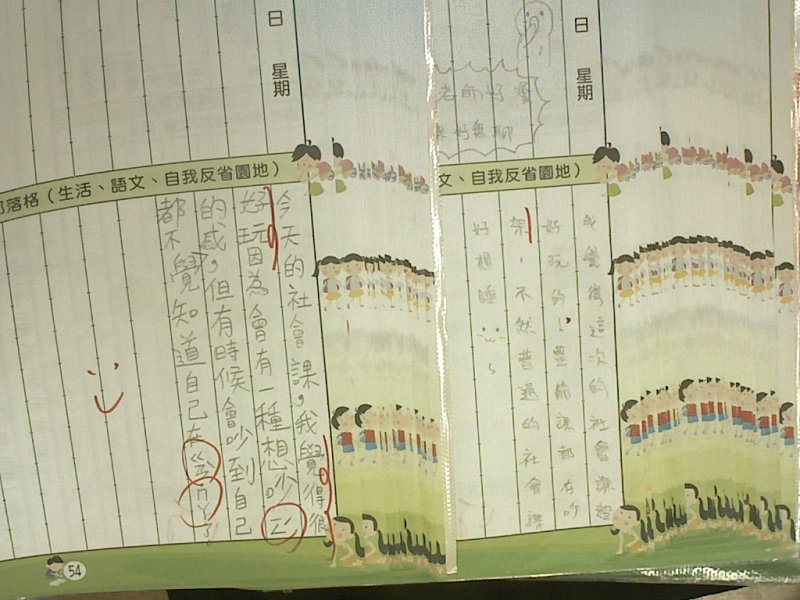 日 星期
部落格（生活、語文、自我反省園地）
今天的社會課，我覺得很
好玩因為會有一種想吵ㄐㄧㄚˋ
的感，但有時候會吵到自己
都不覺知道自己在ㄍㄢˋㄇㄚˊ了。
54
日 星期
老師好
好無聊
文、自我反省園地）
我覺得這次的社會課挺
好玩的，並偷課都在吵
架，不然普通的社會課
好想睡